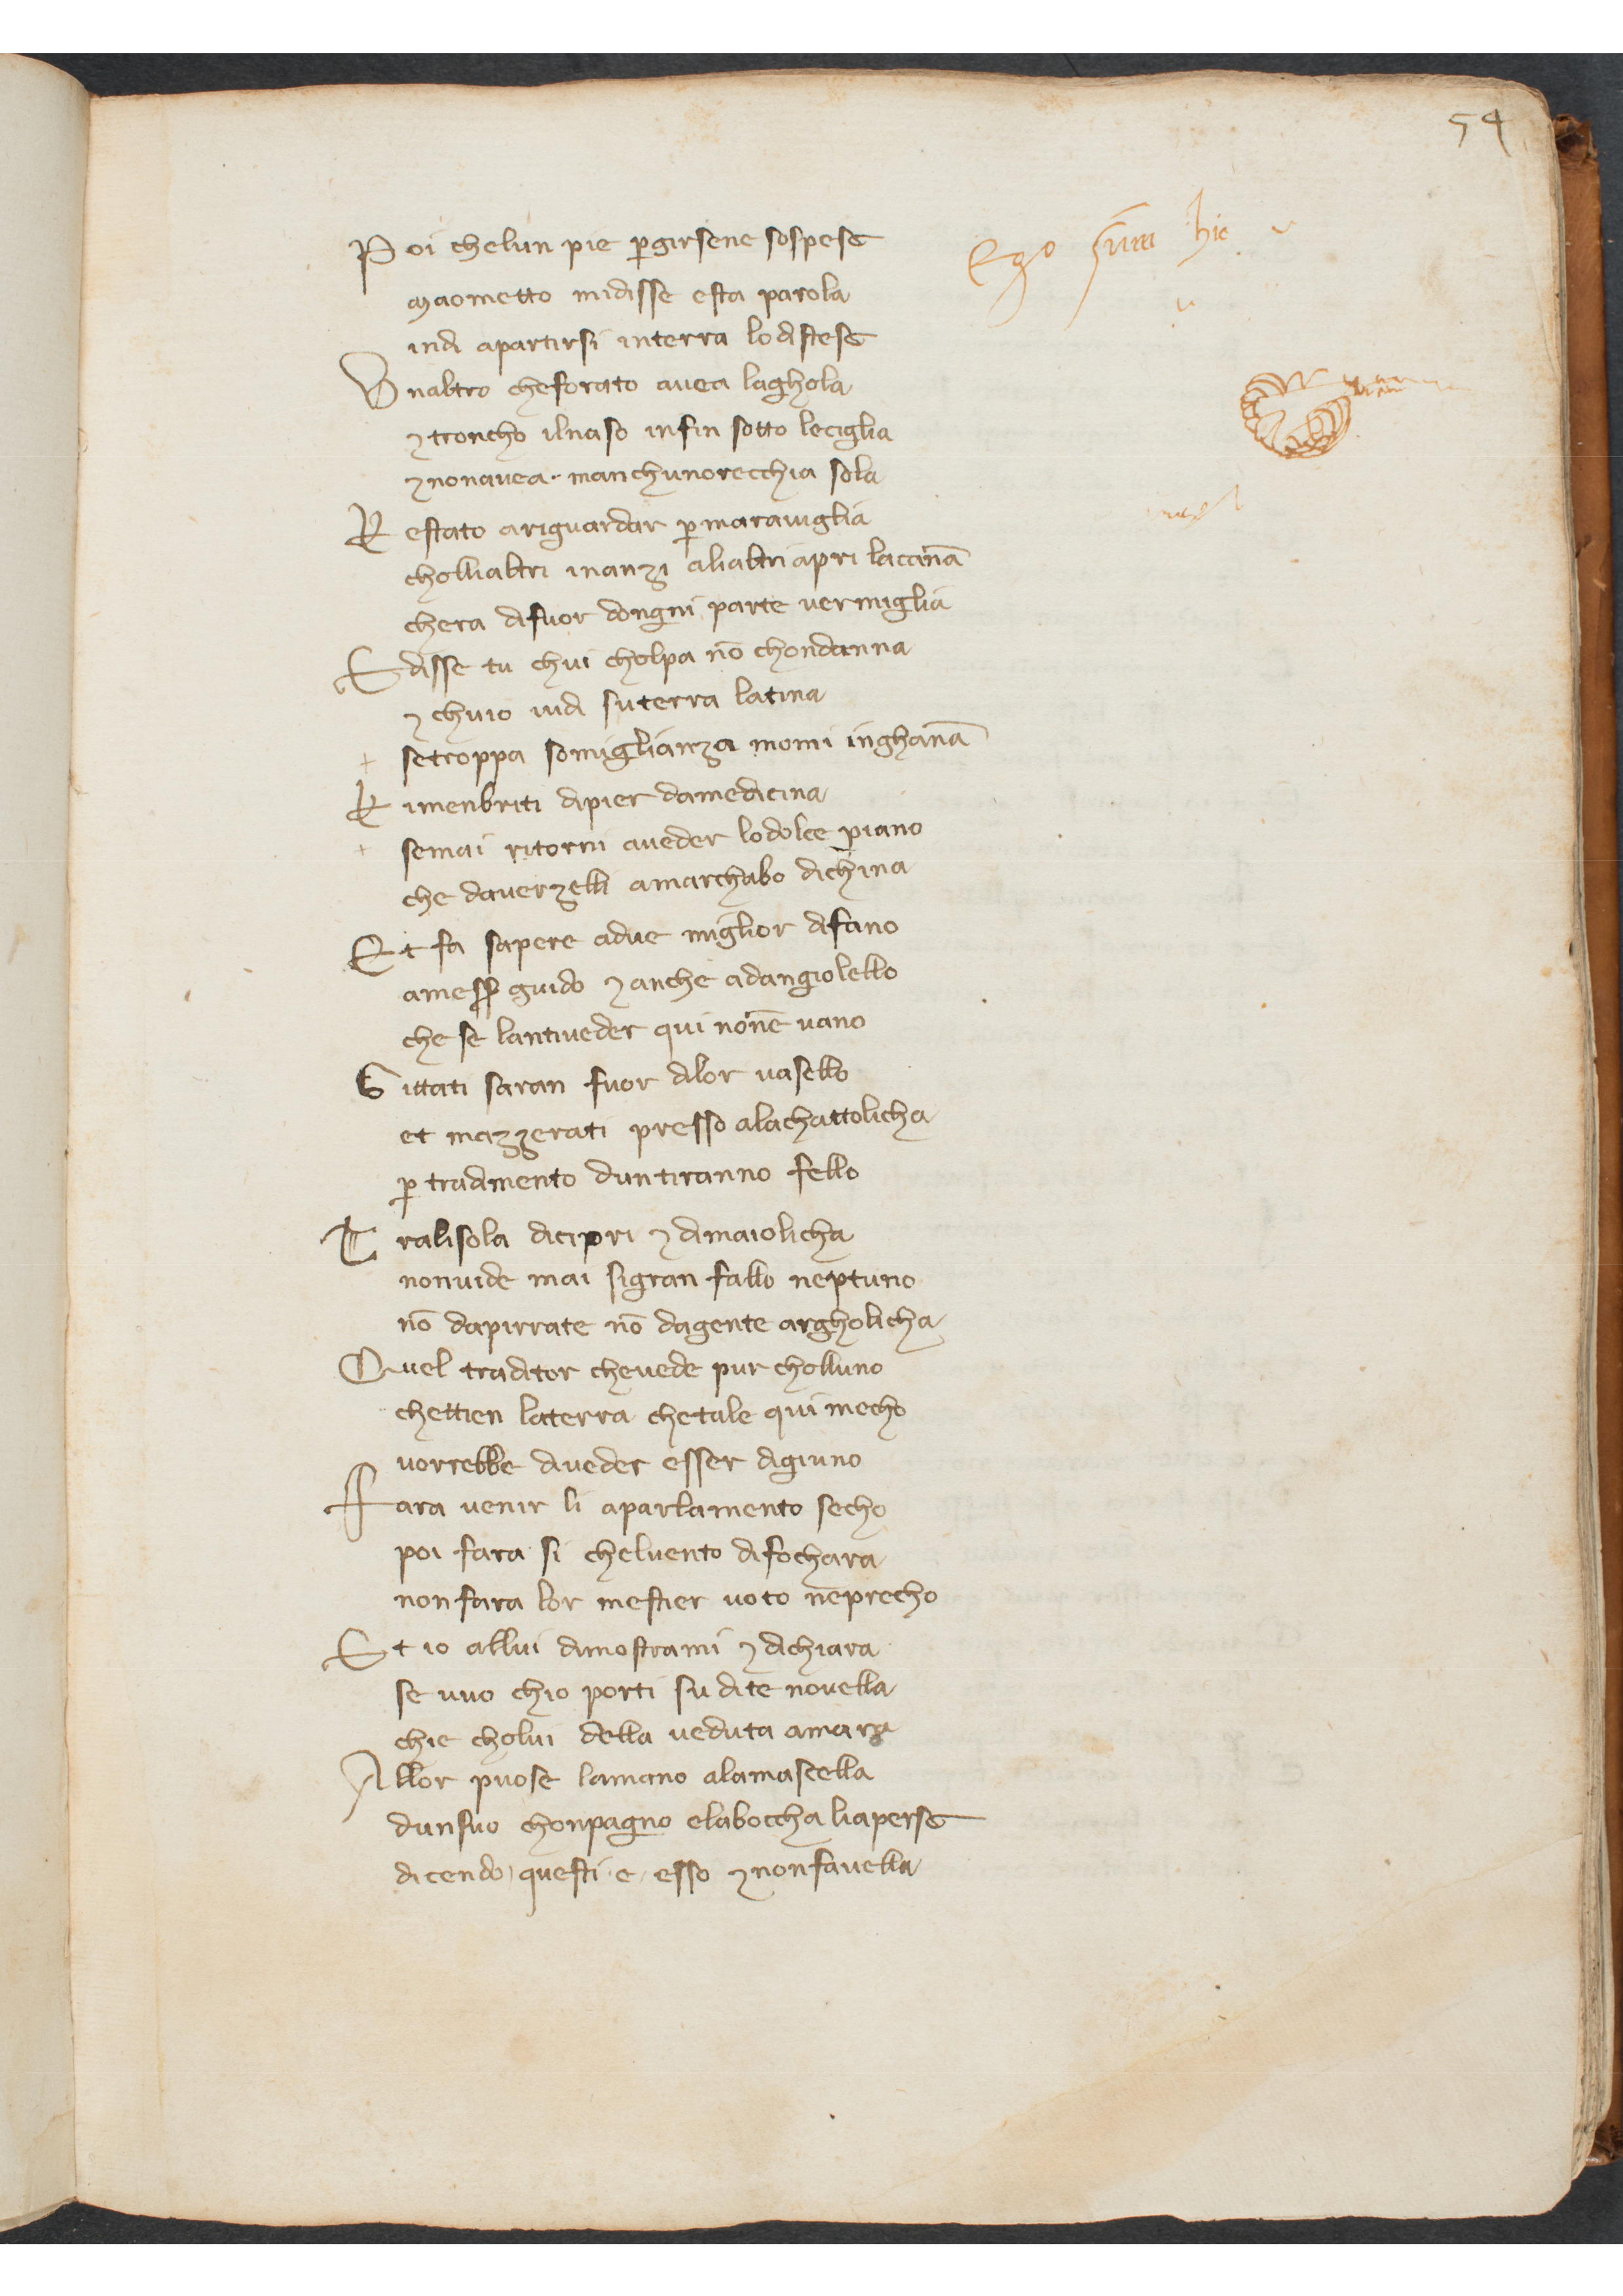 54
Poi chelun pie ꝑgirsene sospese
maometto midisse esta parola
indi apartirsi interra lodistese
Vnaltro cheforato auea laghola
⁊ troncho ilnaso infin sotto leciglia
⁊ nonauea · manchunorecchia sola
Restato ariguardar ꝑ marauiglia
cholliàltri inanzi aliàltri apri lacānā
chera difuor dongni parte uermiglia
Edisse tu chui cholpa nō chondanna
⁊ chuio uidi suterra latina
+ setroppa somiglianza momi inghanā
Rimenbriti dipier damedicina
+ semai ritorni aueder lodolce piano
che dauerzelli amarchabo dichina
Et fa sapere adue miglior difano
amess̄ guido ⁊ anche adangiolello
che se lantiueder qui nonē uano
Gittati saran fuor dilor uasello
et mazzerati presso alachattolicha
ꝑ tradimento duntiranno fello
Tralisola dicipri ⁊ dimaiolicha
nonuide mai sigran fallo neptuno
nō dapirrate nō dagente argholicha
Quel traditor cheuede pur cholluno
chettien laterra chetale qui mecho
uorrebbe diueder esser digiuno
Fara uenir li aparlamento secho
poi fara si cheluento difochara
nonfara lor mestier uoto neprecho
Et io allui dimostrami ⁊ dichiara
se uuo chio porti su dite nouella
chie cholui della ueduta amara
Allor puose lamano alamascella
dunsuo chonpagno elaboccha liaperse
dicendo questi · e · esso ⁊ nonfauella
Ego sum hic